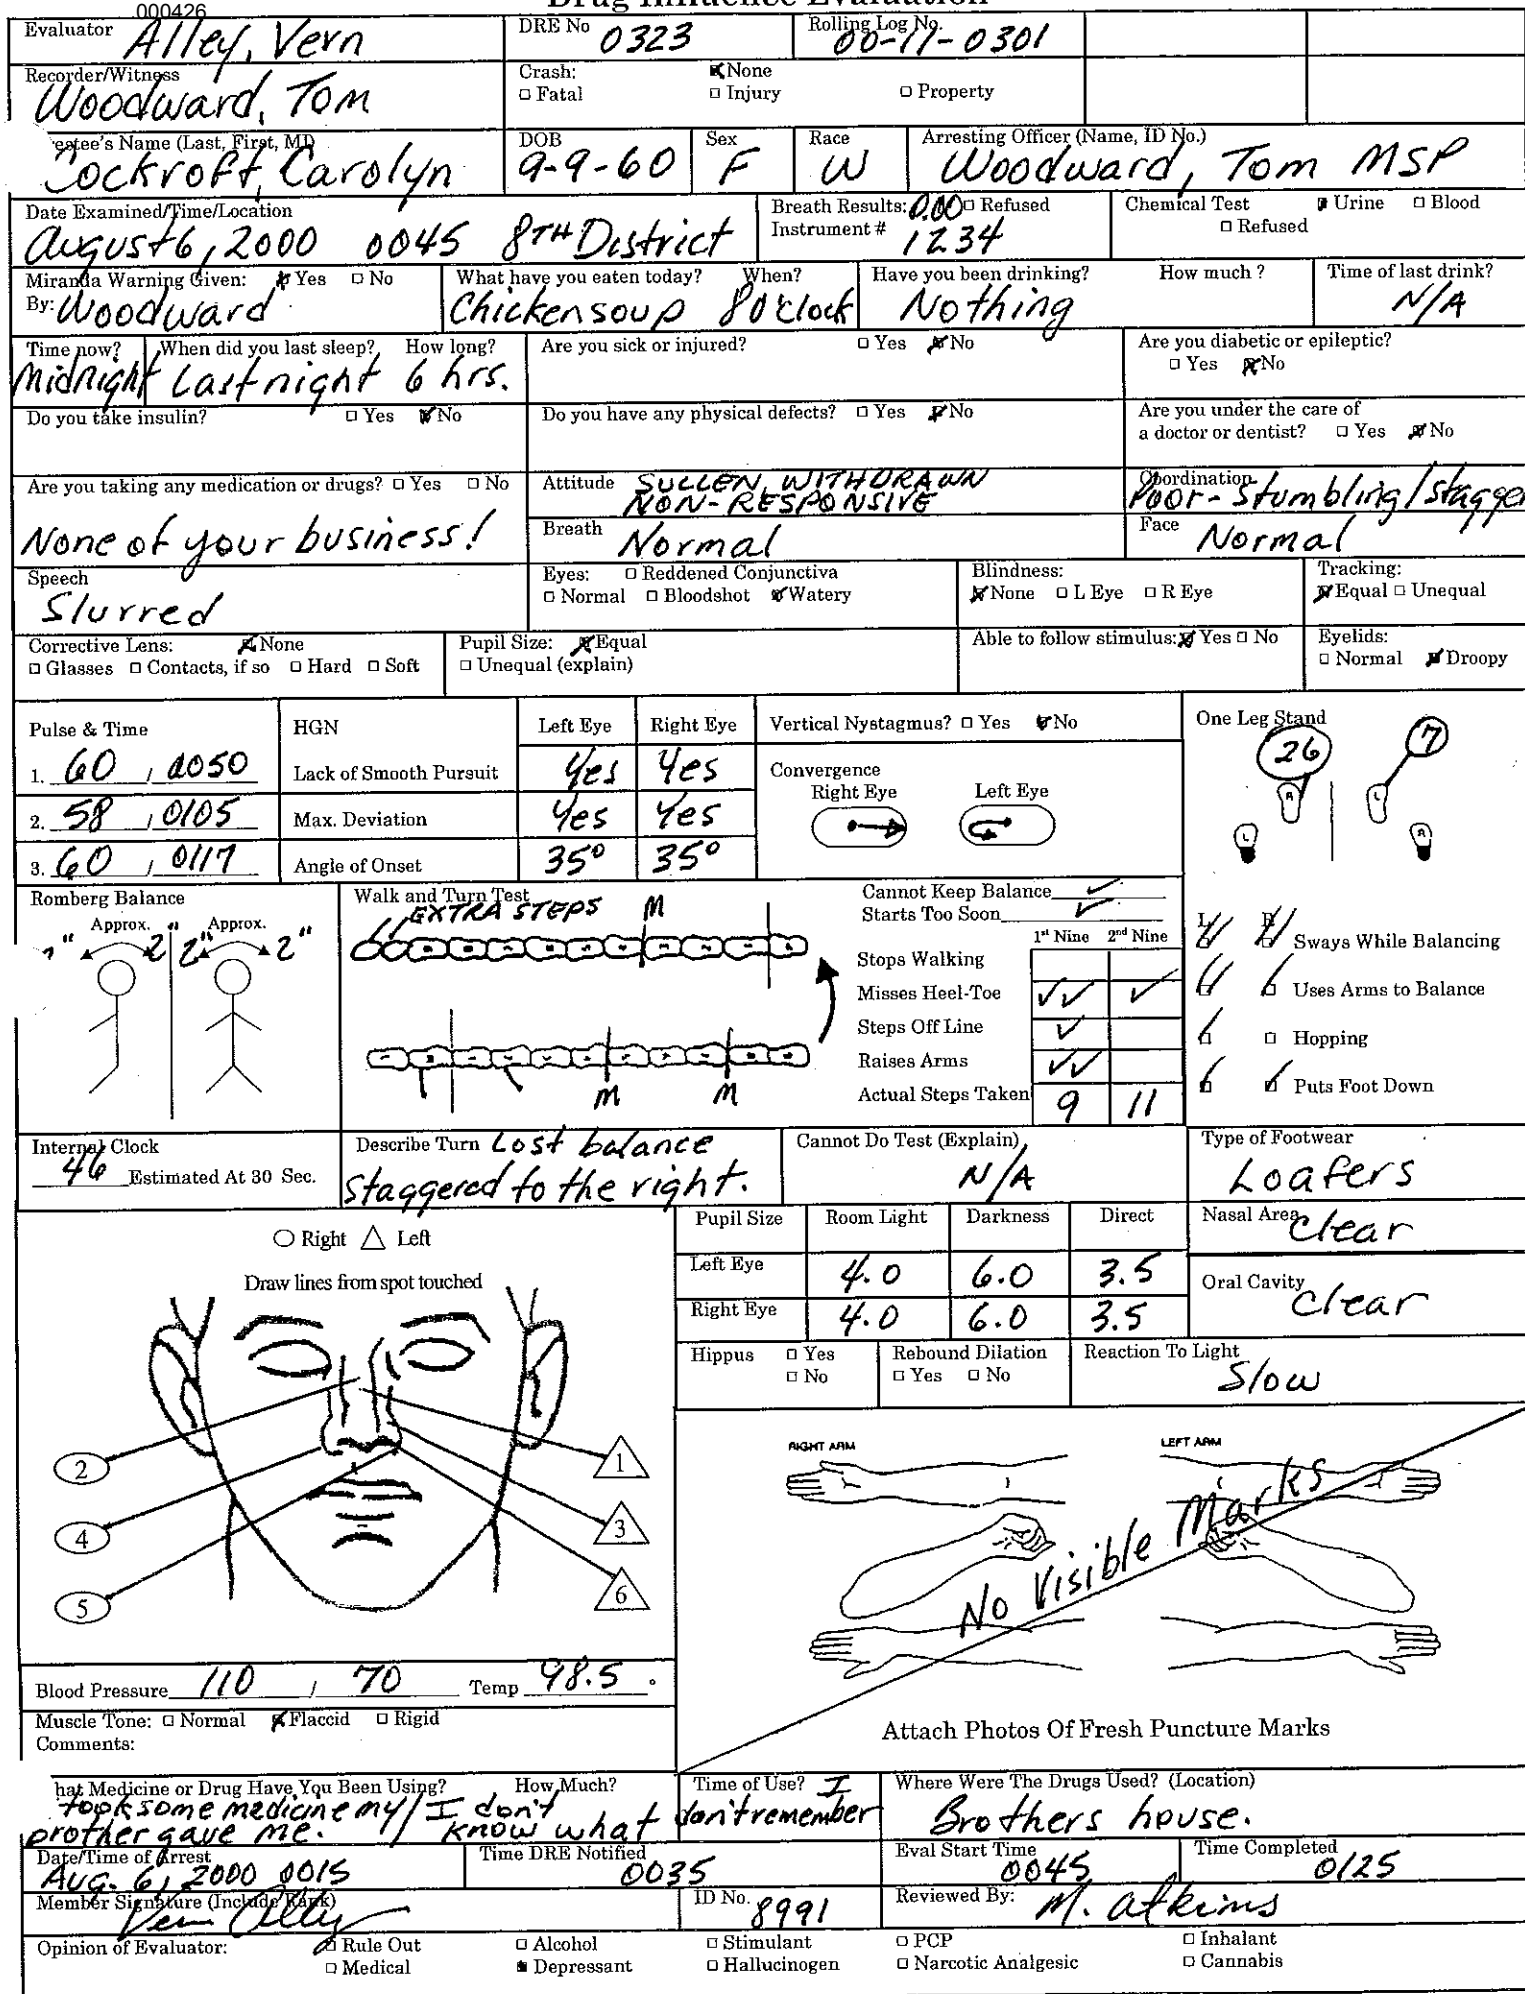 000426
Drug Influence Evaluation
Evaluator Alley, Vern DRE No 0323 Rolling Log No. 00-11-0301
Recorder/Witness Woodward, Tom Crash: None
Fatal Injury Property
estee's Name (Last, First, MI) Cockroft, Carolyn DOB 9-9-60 Sex F Race W Arresting Officer (Name, ID No.) Woodward, Tom MSP
Date Examined/Time/Location August 6, 2000 0045 8TH District Breath Results: 0.00 Refused Instrument # 1234 Chemical Test Urine Blood Refused
Miranda Warning Given: Yes No By: Woodward What have you eaten today? When? Chicken soup 8 o'clock Have you been drinking? How much ? Nothing Time of last drink? N/A
Time now? Midnight When did you last sleep? How long? Last night 6 hrs. Are you sick or injured? Yes No Are you diabetic or epileptic? Yes No
Do you take insulin? Yes No Do you have any physical defects? Yes No Are you under the care of a doctor or dentist? Yes No
Are you taking any medication or drugs? Yes No None of your business! Attitude SULLEN, WITHDRAWN NON-RESPONSIVE Coordination Poor-Stumbling/stagger
Breath Normal Face Normal
Speech Slurred Eyes: Reddened Conjunctiva Normal Bloodshot Watery Blindness: None L Eye R Eye Tracking: Equal Unequal
Corrective Lens: None Glasses Contacts, if so Hard Soft Pupil Size: Equal Unequal (explain) Able to follow stimulus: Yes No Eyelids: Normal Droopy
Pulse & Time HGN Left Eye Right Eye Vertical Nystagmus? Yes No One Leg Stand
1. 60 / 0050 Lack of Smooth Pursuit Yes Yes Convergence Right Eye Left Eye 26 7
2. 58 / 0105 Max. Deviation Yes Yes R L
3. 60 / 0117 Angle of Onset 35° 35° L R
Romberg Balance Approx. Approx. 2" 2" 2"
Walk and Turn Test EXTRA STEPS M
M M
Cannot Keep Balance
Starts Too Soon
1st Nine 2nd Nine
Stops Walking
Misses Heel-Toe
Steps Off Line
Raises Arms
Actual Steps Taken 9 11
L R
Sways While Balancing
Uses Arms to Balance
Hopping
Puts Foot Down
Internal Clock 46 Estimated At 30 Sec. Describe Turn Lost balance Staggered to the right. Cannot Do Test (Explain) N/A Type of Footwear Loafers
Right Left
Draw lines from spot touched
2 4 5 1 3 6
Pupil Size Room Light Darkness Direct Nasal Area Clear
Left Eye 4.0 6.0 3.5 Oral Cavity Clear
Right Eye 4.0 6.0 3.5
Hippus Yes No Rebound Dilation Yes No Reaction To Light Slow
RIGHT ARM LEFT ARM
No Visible Marks
Attach Photos Of Fresh Puncture Marks
Blood Pressure 110 / 70 Temp 98.5 °
Muscle Tone: Normal Flaccid Rigid
Comments:
hat Medicine or Drug Have You Been Using? How Much? took some medicine my brother gave me. / I don't know what Time of Use? I don't remember Where Were The Drugs Used? (Location) Brothers house.
Date/Time of Arrest Aug. 6, 2000 0015 Time DRE Notified 0035 Eval Start Time 0045 Time Completed 0125
Member Signature (Include Rank) Vern Alley ID No. 8991 Reviewed By: M. Atkins
Opinion of Evaluator: Rule Out Alcohol Stimulant PCP Inhalant
Medical Depressant Hallucinogen Narcotic Analgesic Cannabis